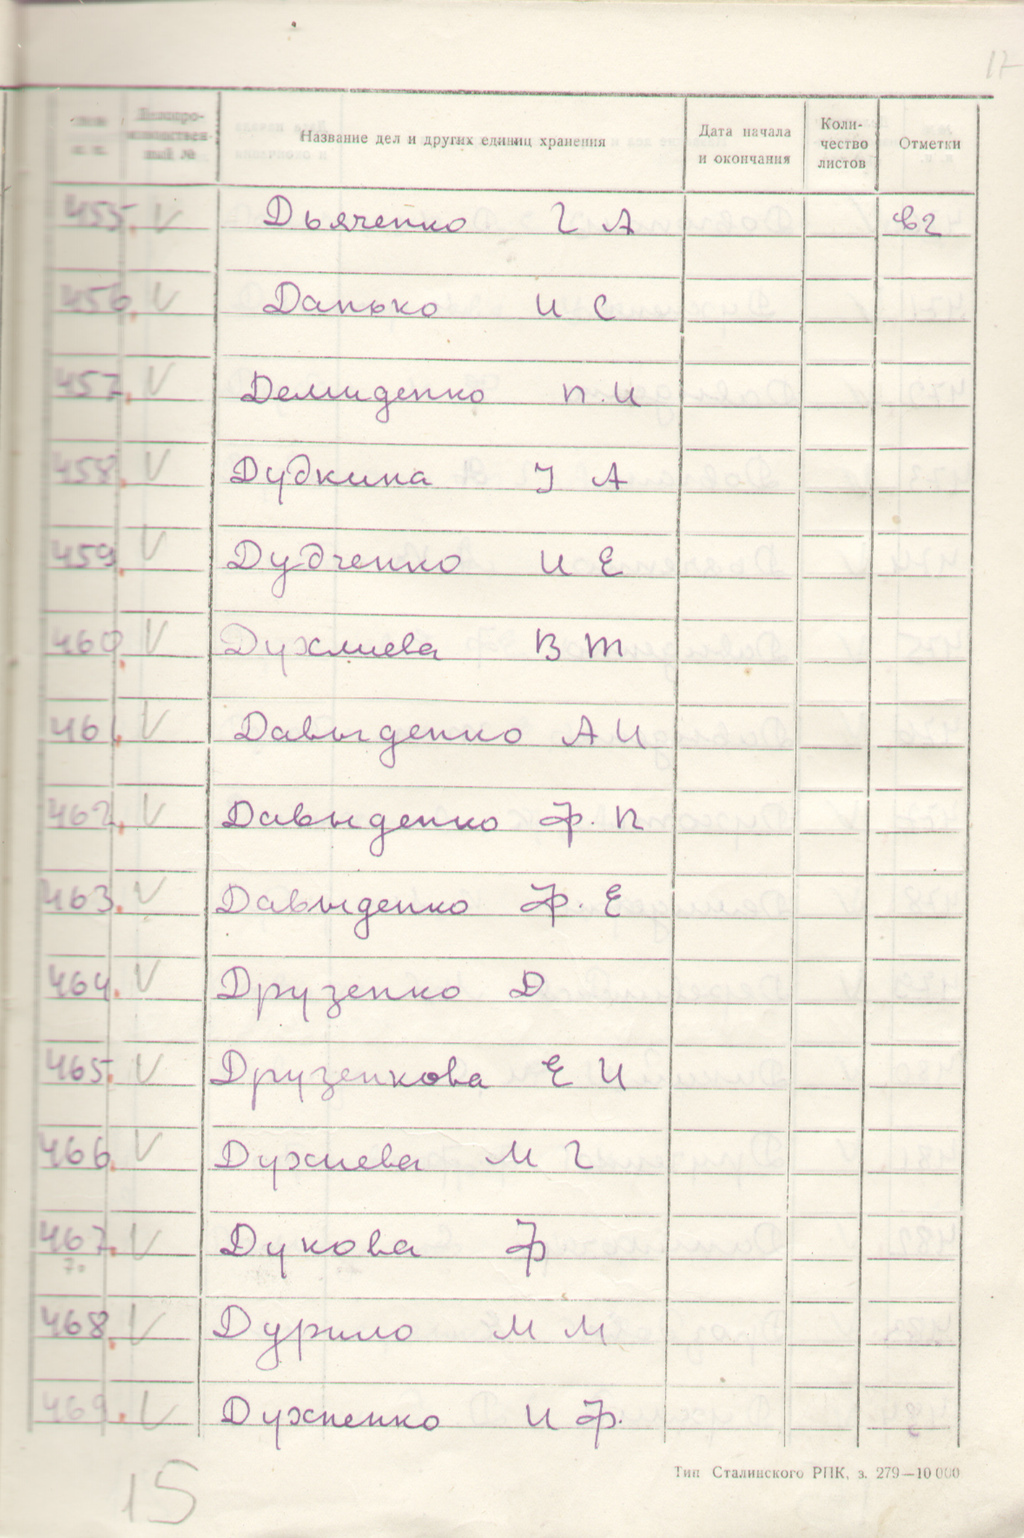 17
№№ п. п. Делопро- изводствен- ный № Название дел и других единиц хранения Дата начала и окончания Коли- чество листов Отметки
455. V Дьяченко Г А
456. V Данько И С
457. V Демиденко П. И
458. V Дудкина У А
459. V Дудченко И Е
460. V В Т
461. V Давыденко А И
462. V Давыденко Ф. П
463. V Давыденко Ф. Е
464. V Друзенко Д
465. V Друзенкова Е И
466. V М Г
467. V Дукова Ф
468. V Дурило М М
469. V Духненко И Ф.
Тип Сталинского РПК, з. 279—10 000
15